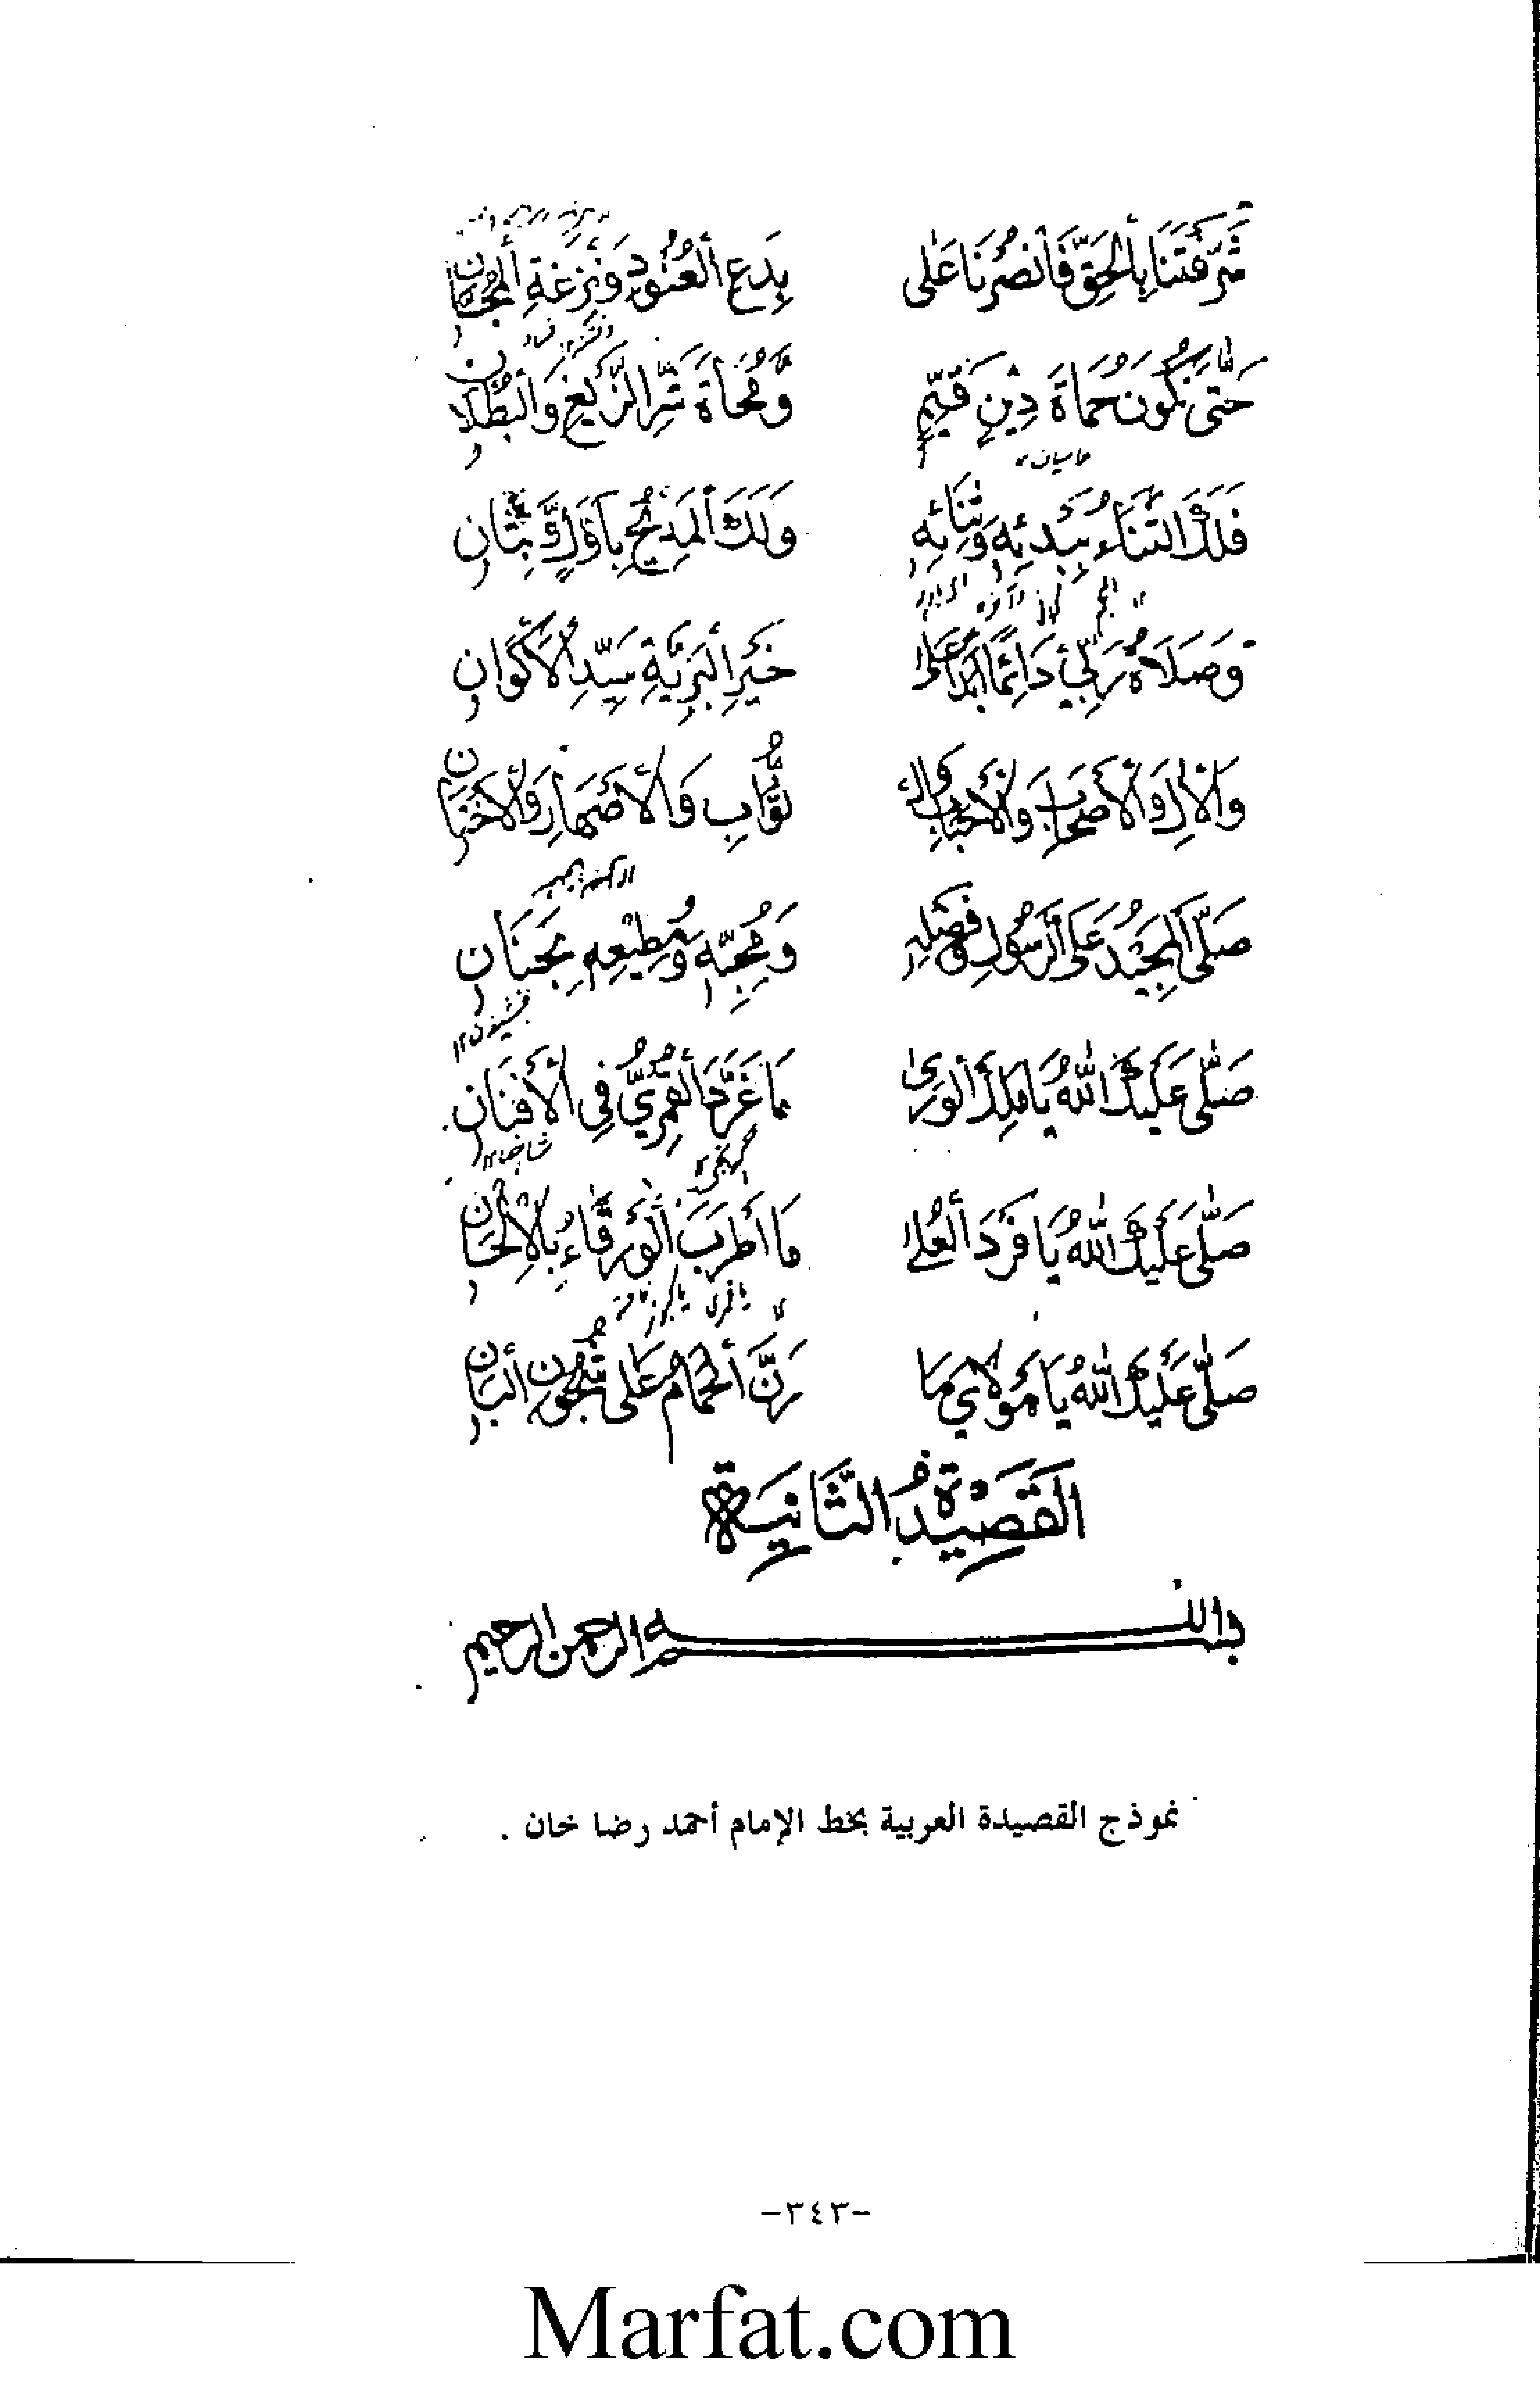 شَرَّفْتَنَا بِالْحَقِّ فَانْصُرْنَا عَلٰى بِدَعِ الْعُنُودِ وَنَزْغَةِ
حَتّٰى نَكُونَ حُمَاةَ دِيْنٍ قَيِّمٍ وَمُحَاةَ شَرِّ الزَّيْغِ وَالْبُطْلَانِ
فَلَكَ الثَّنَاءُ بِبَدْئِهٖ وَثَنَائِهٖ وَلَكَ الْمَدِيْحُ بِأَوَّلٍ وَّبِثَانِ
وَصَلَاةُ رَبِّيْ دَائِمًا أَبَدًا عَلٰى خَيْرِ الْبَرِيَّةِ سَيِّدِ الْأَكْوَانِ
وَالْاٰلِ وَالْأَصْحَابِ وَالْأَحْبَابِ وَالـ نُوَّابِ وَالْأَصْهَارِ وَالْأَخْتَانِ
صَلَّى الْمَجِيْدُ عَلَى الرَّسُوْلِ وَفَضْلِهٖ وَمُحِبِّهٖ وَمُطِيْعِهٖ بِحَنَانِ
صَلّٰى عَلَيْكَ اللهُ يَا مَلِكَ الْوَرٰى مَا غَرَّدَ الْقُمْرِيُّ فِي الْأَفْنَانِ
صَلّٰى عَلَيْكَ اللهُ يَا فَرْدَ الْعُلٰى مَا أَطْرَبَ الْوَرْقَاءُ بِالْأَلْحَانِ
صَلّٰى عَلَيْكَ اللهُ يَا مَوْلَايَ مَا رَنَّ الْحَمَامُ عَلٰى شُجُوْنِ الْبَانِ
القَصِيْدَةُ الثَّانِيَة
بسم الله الرحمن الرحيم
نموذج القصيدة العربية بخط الإمام أحمد رضا خان .
-٣٤٣-
Marfat.com